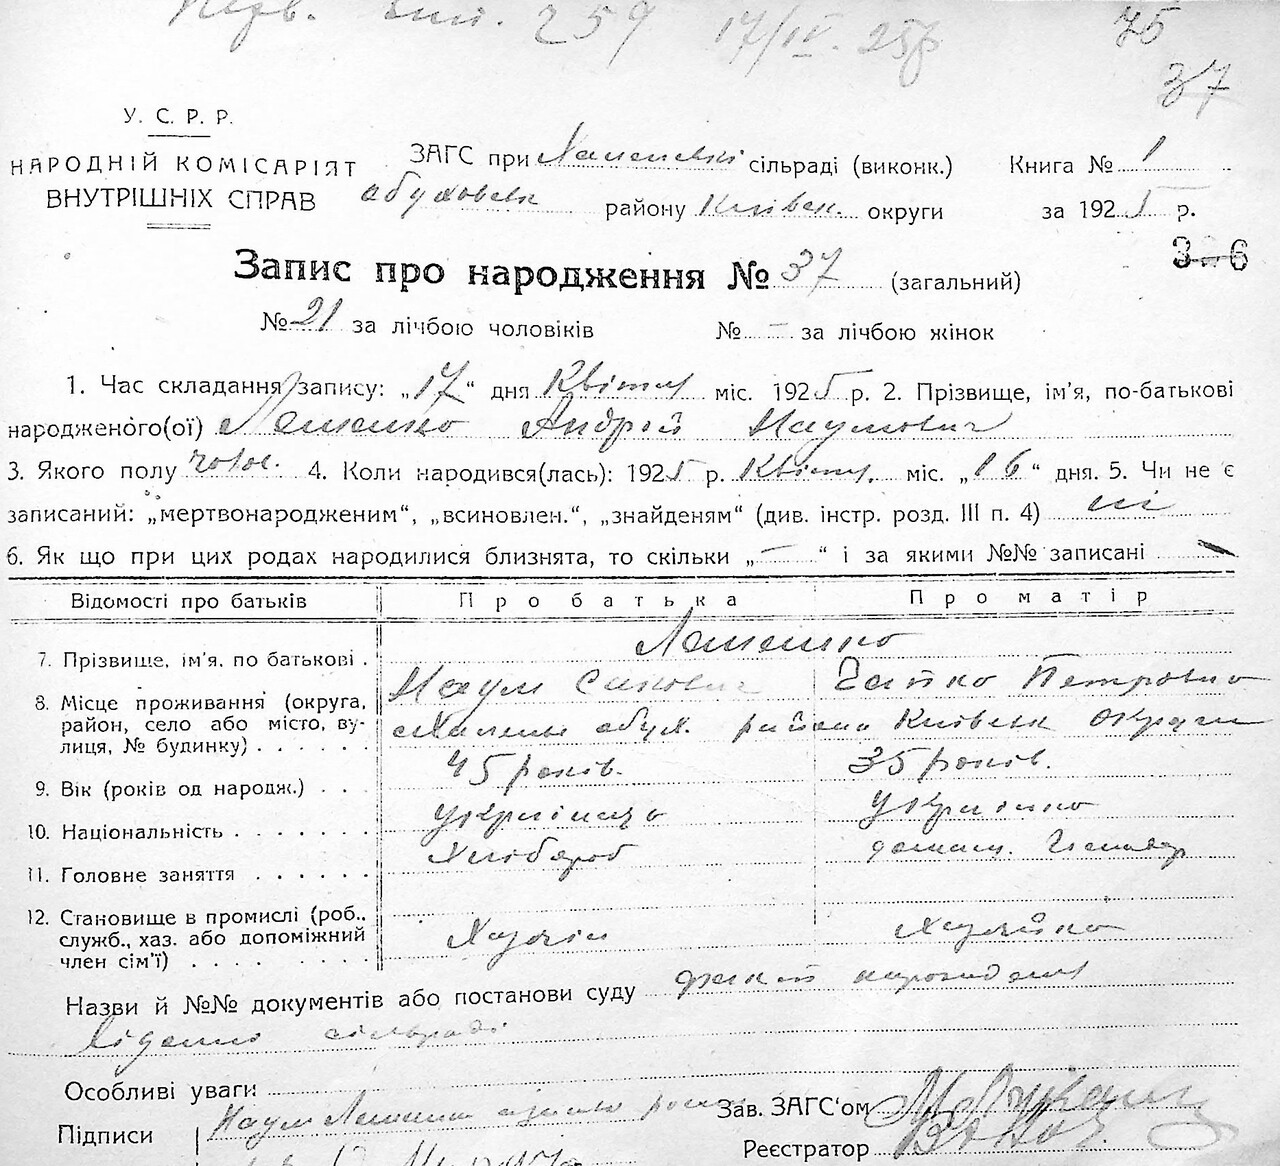 259 17/IV. 25р
75
37
У. С. Р. Р.
НАРОДНІЙ КОМІСАРІЯТ
ВНУТРІШНІХ СПРАВ
ЗАГС при сільраді (виконк.) Книга № 1
Обуховськ району Київськ. округи за 1925 р.
3 6
Запис про народження № 37 (загальний)
№ 21 за лічбою чоловіків № — за лічбою жінок
1. Час складання запису: „17“ дня Квітня міс. 1925 р. 2. Прізвище, ім'я, по-батькові
народженого(ої) Андрій Наумович
3. Якого полу чолов. 4. Коли народився(лась): 1925 р. Квітня міс. „16“ дня. 5. Чи не є
записаний: „мертвонародженим“, „всиновлен.“, „знайденям“ (див. інстр. розд. III п. 4) ні
6. Як що при цих родах народилися близнята, то скільки „—“ і за якими №№ записані
Відомості про батьків Про батька Про матір
7. Прізвище, ім'я, по батькові .
Наум Петровна
8. Місце проживання (округа,
район, село або місто, ву-
лиця, № будинку) . . . . . .
обух. района Київськ округи
9. Вік (років од народж.) . . . 45 років. 35 років.
10. Національність . . . . . . . українець українка
11. Головне заняття . . . . . . Хлібороб домашн.
12. Становище в промислі (роб.,
служб., хаз. або допоміжний
член сім'ї) . . . . . . . .
Хазяїн Хазяйка
Назви й №№ документів або постанови суду
сільраді
Особливі уваги
Підписи Наум
Зав. ЗАГС'ом
Реєстратор